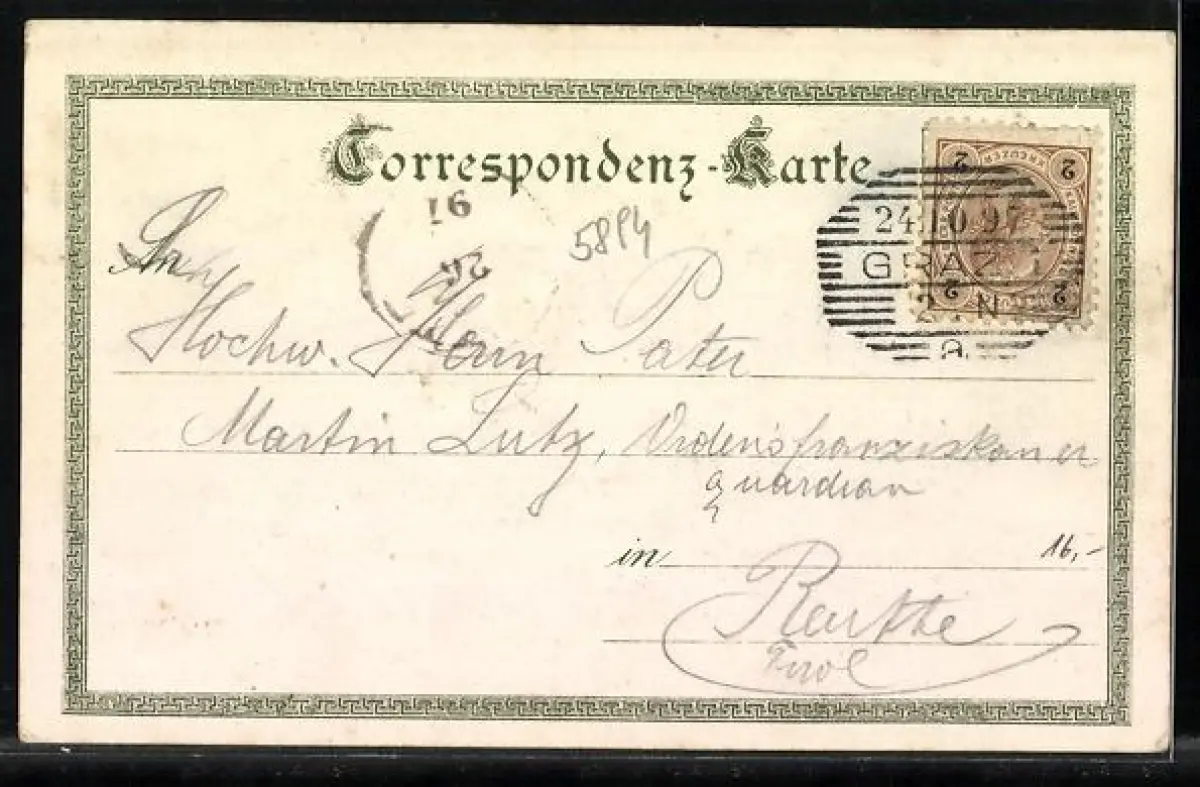 Correspondenz-Karte
2 KREUZER 2
24.10.97
GRAZ 1
2 - N
2 2
a
91
5814
An
Hochw. Herrn Pater
Martin Lutz, Ordensfranziskaner
Guardian
in 16,-
Reutte
Tirol